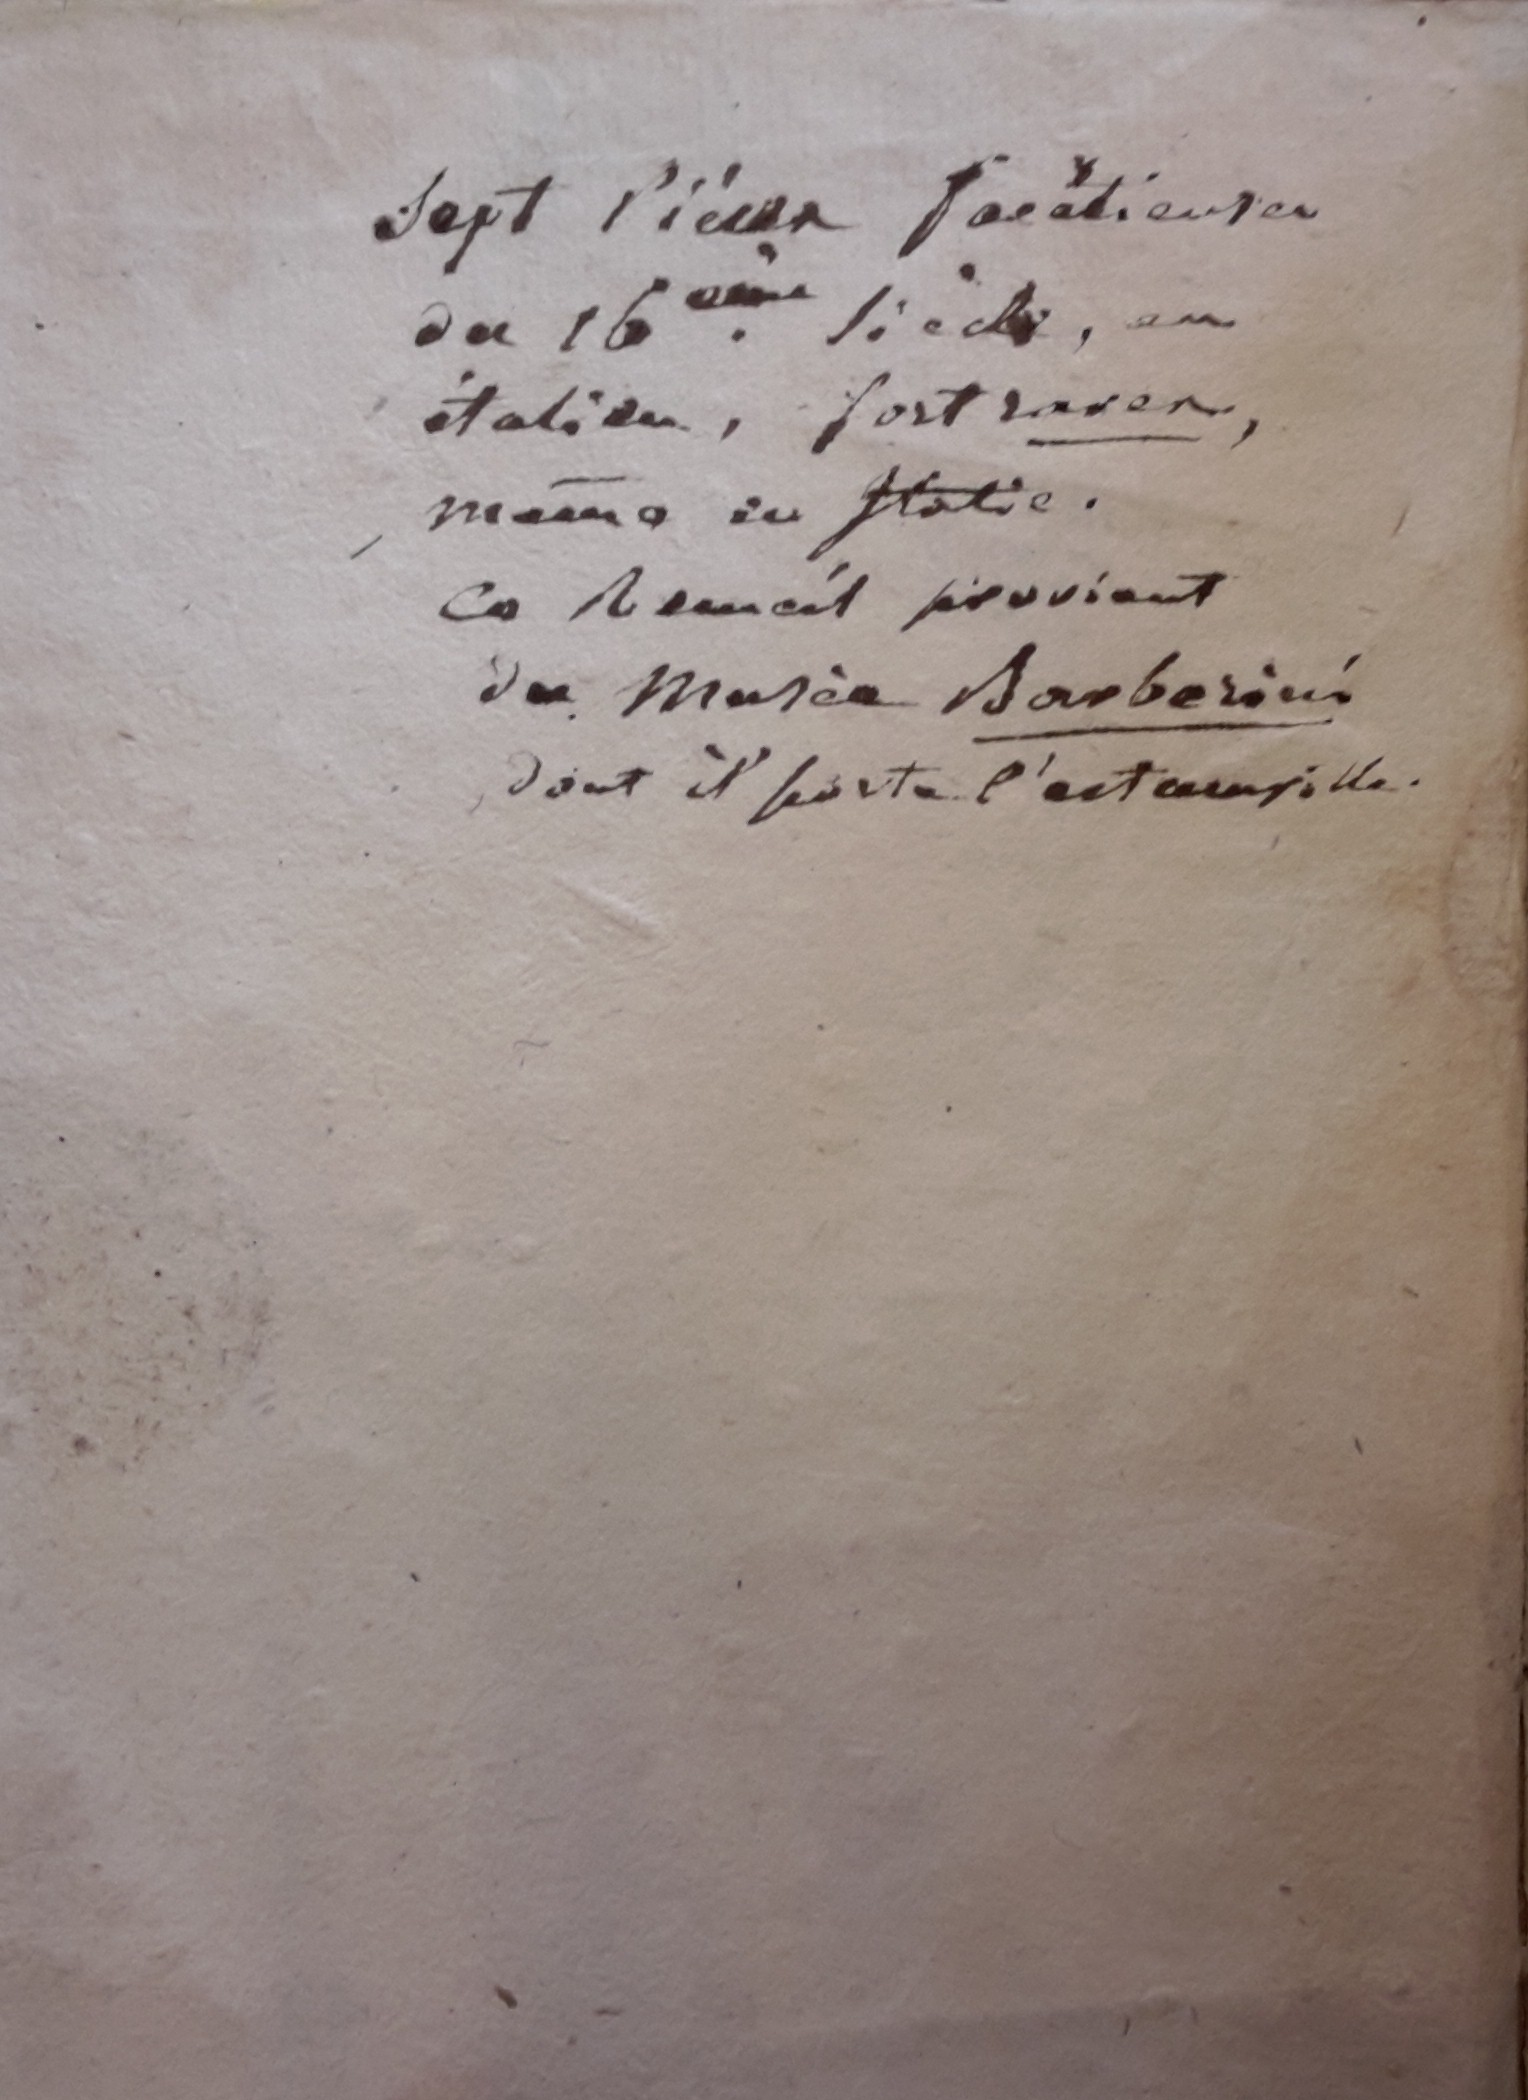 Sept Pièces facétieuses
du 16ème. siècle, en
italien, fort rares,
même en Italie.
Ce Recueil provient
du Musée Barberini
dont il porte l'estampille.